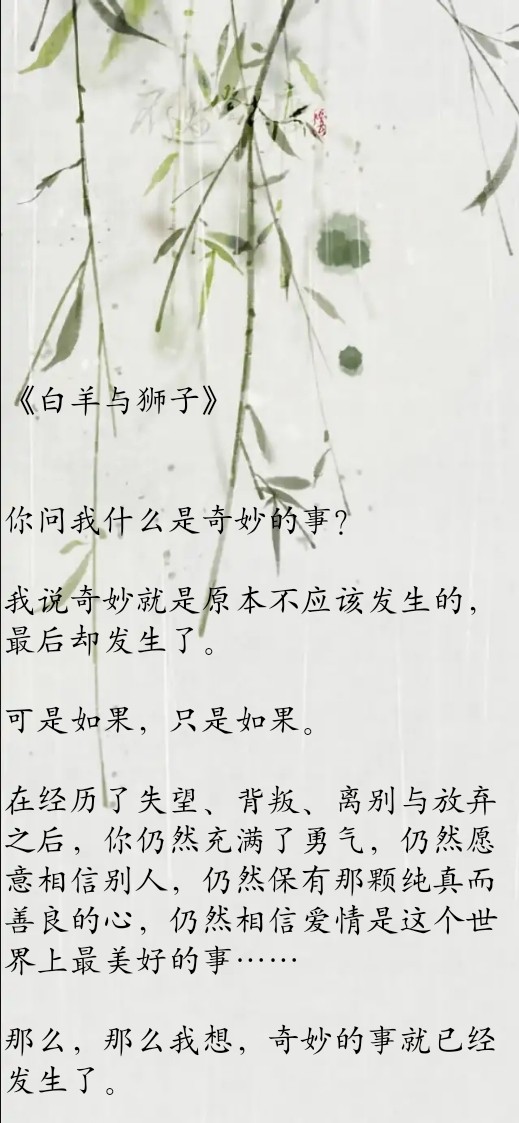 《白羊与狮子》
你问我什么是奇妙的事?
我说奇妙就是原本不应该发生的，
最后却发生了。
可是如果，只是如果。
在经历了失望、背叛、离别与放弃
之后，你仍然充满了勇气，仍然愿
意相信别人，仍然保有那颗纯真而
善良的心，仍然相信爱情是这个世
界上最美好的事……
那么，那么我想，奇妙的事就已经
发生了。